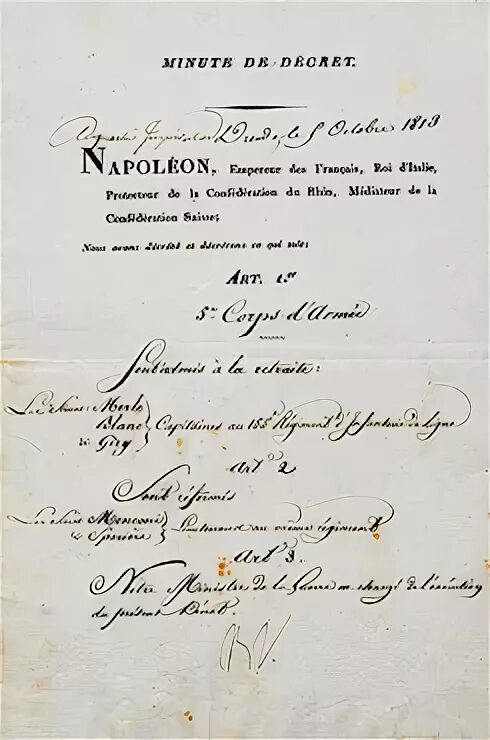 MINUTE DE DÉCRET.
Quartier Impérial de Dresde, le 5 Octobre 1813
NAPOLÉON, Empereur des Français, Roi d'Italie,
Protecteur de la Confédération du Rhin, Médiateur de la
Confédération Suisse;
Nous avons décrété et décrétons ce qui suit:
ART. 1.er
5me Corps d'Armée
Sont admis à la retraite:
Les Sieurs Merle
Blanc
& Giry
Capitaines au 155e Régiment d'Infanterie de ligne
Art. 2
Sont réformés
Les Sieurs
&
Lieutenants au même régiment
Art. 3.
Notre Ministre de la Guerre est chargé de l'exécution
du présent Décret